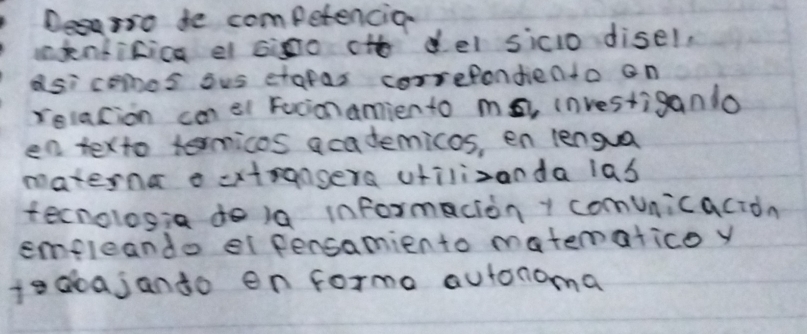 Desarro de competencia
identifica el siclo del siclo disel,
asi comos sus etapas correpondiento en
relación con el Fucionamiento investigando
en texto termicos academicos, en lengua
materna o extrangera utilizanda las
tecnologia de la información y comunicación
empleando el pensamiento matematico y
trabajando en forma autonoma